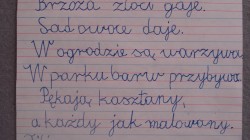 Brzoza złoci gaje.
Sad owoce daje.
W ogrodzie są warzywa
W parku barw przybywa.
Pękają kasztany,
a każdy jak malowany.